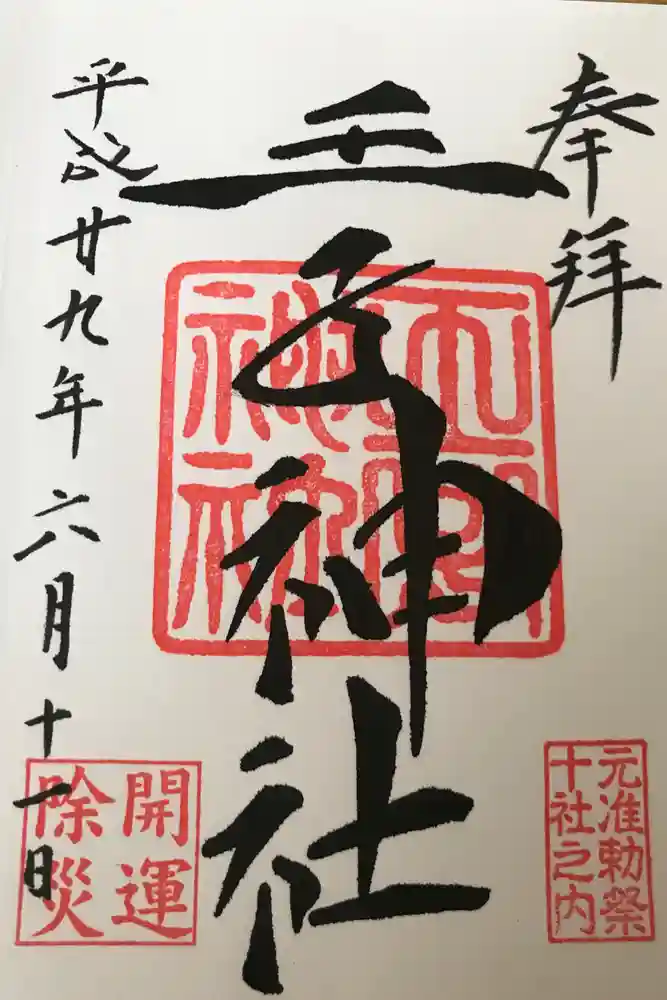 奉拝
元准勅祭
十社之内
王子神社
平成廿九年六月十一日
開運
除災